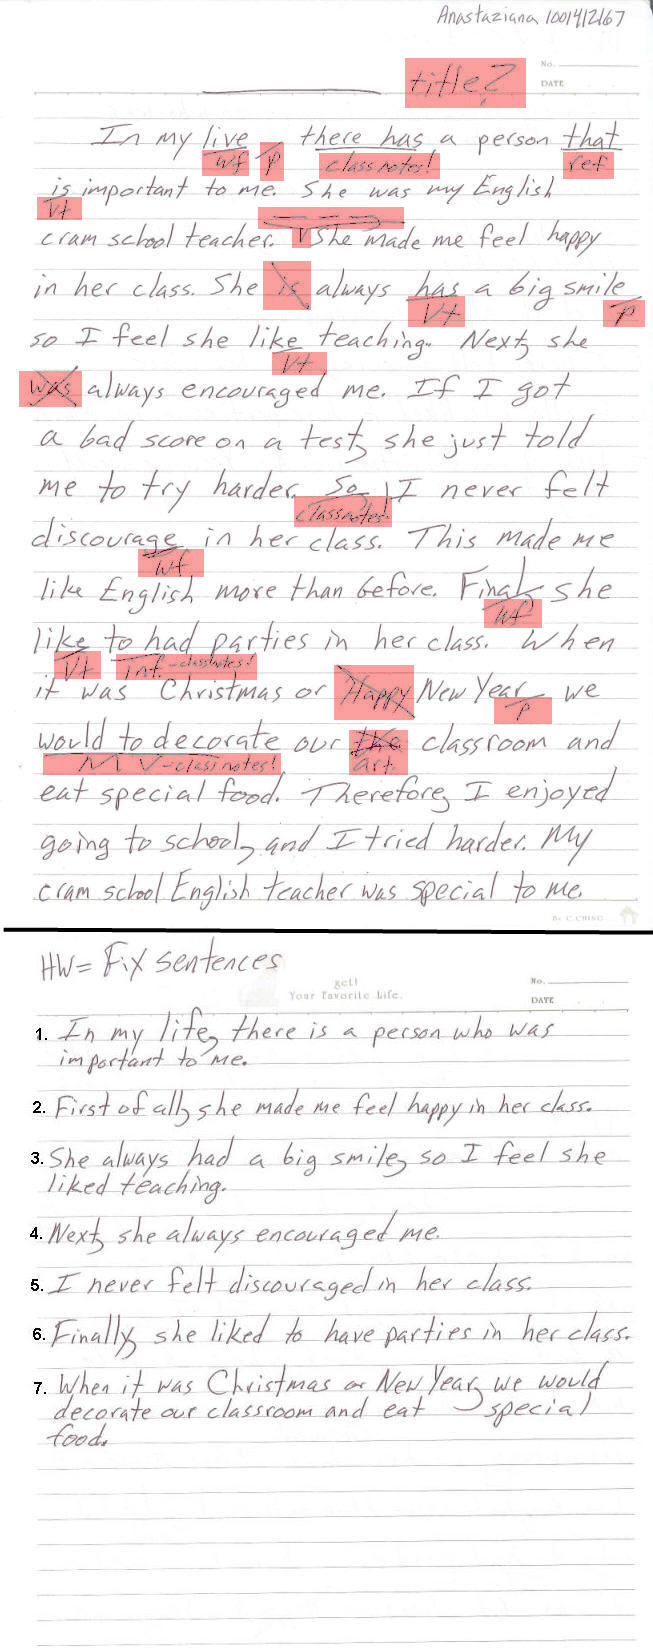 Anastaziana 1001412167
title?
No.
DATE
In my live there has a person that
wf p class notes! ref
is important to me. She was my English
Vt
cram school teacher. She made me feel happy
in her class. She is always has a big smile
Vt p
so I feel she like teaching. Next, she
Vt
was always encouraged me. If I got
a bad score on a test, she just told
me to try harder. So I never felt
classnotes!
discourage in her class. This made me
wf
like English more than before. Final, she
wf
like to had parties in her class. When
Vt Inf.-classnotes!
it was Christmas or Happy New Year we
p
would to decorate our the classroom and
M V-classnotes! art.
eat special food. Therefore, I enjoyed
going to school, and I tried harder. My
cram school English teacher was special to me.
By C.CHING
HW= Fix sentences
get!
Your Favorite Life.
No.
DATE
1. In my life, there is a person who was
important to me.
2. First of all, she made me feel happy in her class.
3. She always had a big smile, so I feel she
liked teaching.
4. Next, she always encouraged me.
5. I never felt discouraged in her class.
6. Finally, she liked to have parties in her class.
7. When it was Christmas or New Year, we would
decorate our classroom and eat special
food.